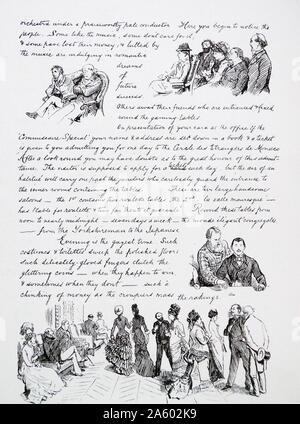 orchestra under a praiseworthy pale conductor Here you begin to notice the
people. Some like the music, some dont care for it,
& some have lost their money, & lulled by
the music are indulging in romantic
dreams
of
future
success.
Others await their friends who are entranced & fixed
round the gaming tables
On presentation of your card at the office of the
Commissaire Special your name & address are set down in a book & a ticket
is given to you admitting you for one day to the Cercle des Etrangers de Monaco
After a look around you may have doubts as to the great honour of this admit-
tance. The visitor is supposed to apply for a ticket each day but the air of an
habitué will carry one past the guides who carefully guard the entrance to
the inner rooms containing the tables. There are two large handsome
saloons — the 1st contains five roulette tables the 2nd — la salle mauresque —
has 1 table for roulette & two for trente et quarante. Round these tables from
noon to nearly midnight — sundays & all — the human elements congregate
— from the Yorkshireman to the Japanese
Evening is the gayest time Such
costumes & toilettes sweep the polished floors
such delicately-gloved fingers clutch the
glittering coins — when they happen to win
& sometimes when they dont — such a
chinking of money as the croupiers make the rakings.
alamy
a
a
alamy
Image ID: 2A602K9
www.alamy.com